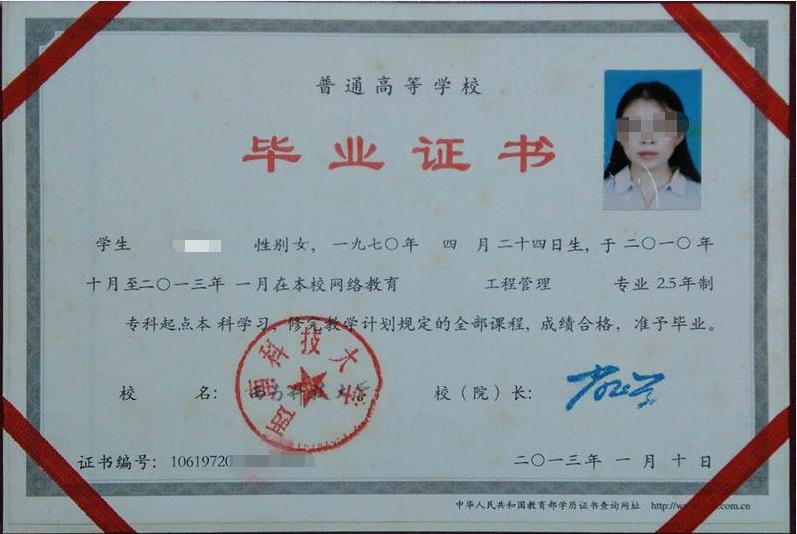 普通高等学校
毕业证书
学生 性别女，一九七〇年 四 月二十四日生，于二〇一〇年
十月至二〇一三年 一月在本校网络教育 工程管理 专业 2.5年制
专科起点本科学习，修完教学计划规定的全部课程，成绩合格，准予毕业。
校 名： 西南科技大学 校（院）长：
西南科技大学
证书编号： 10619720 二〇一三年 一 月 十 日
中华人民共和国教育部学历证书查询网址 http://w .com.cn